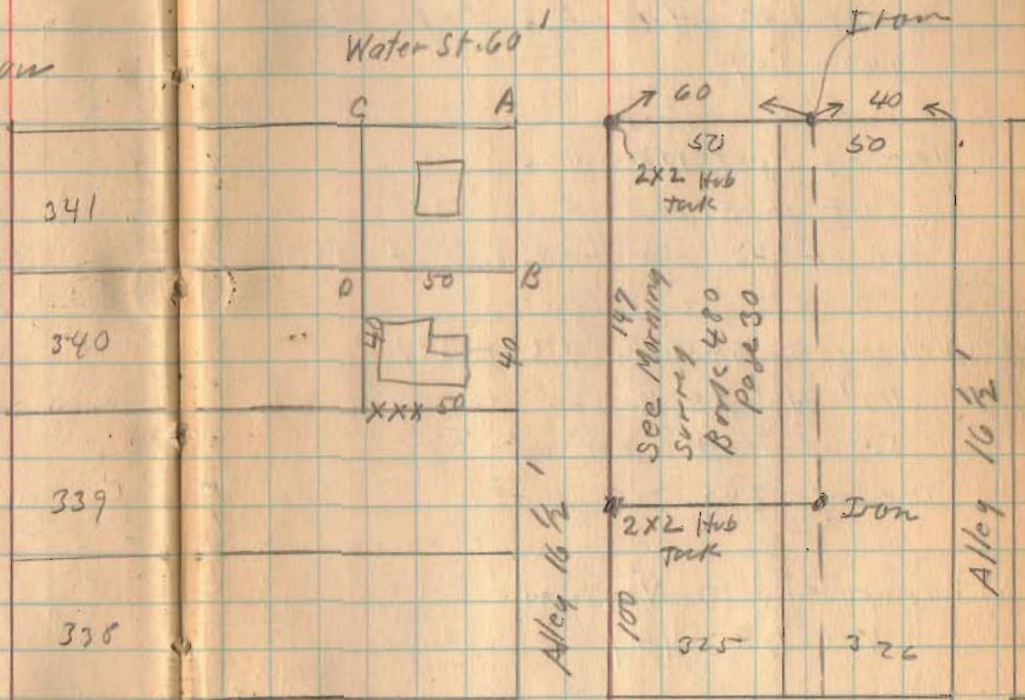 Water St. 60'
Iron
C
A
60
40
50
50
2x2 Hub
Tack
341
D
50
B
340
40
40
xxx 50
197
See Morning
Survey
Book 480
Page 30
339
2x2 Hub
Tack
Iron
Alley 16 1/2'
Alley 16 1/2'
338
100
325
326